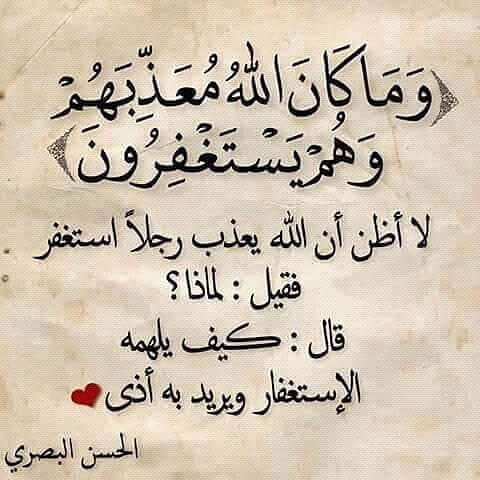 ﴿وَمَا كَانَ اللَّهُ مُعَذِّبَهُمْ
وَهُمْ يَسْتَغْفِرُونَ﴾
لا أظن أن الله يعذب رجلاً استغفر
فقيل : لماذا ؟
قال : كيف يلهمه
الإستغفار ويريد به أذى
الحسن البصري